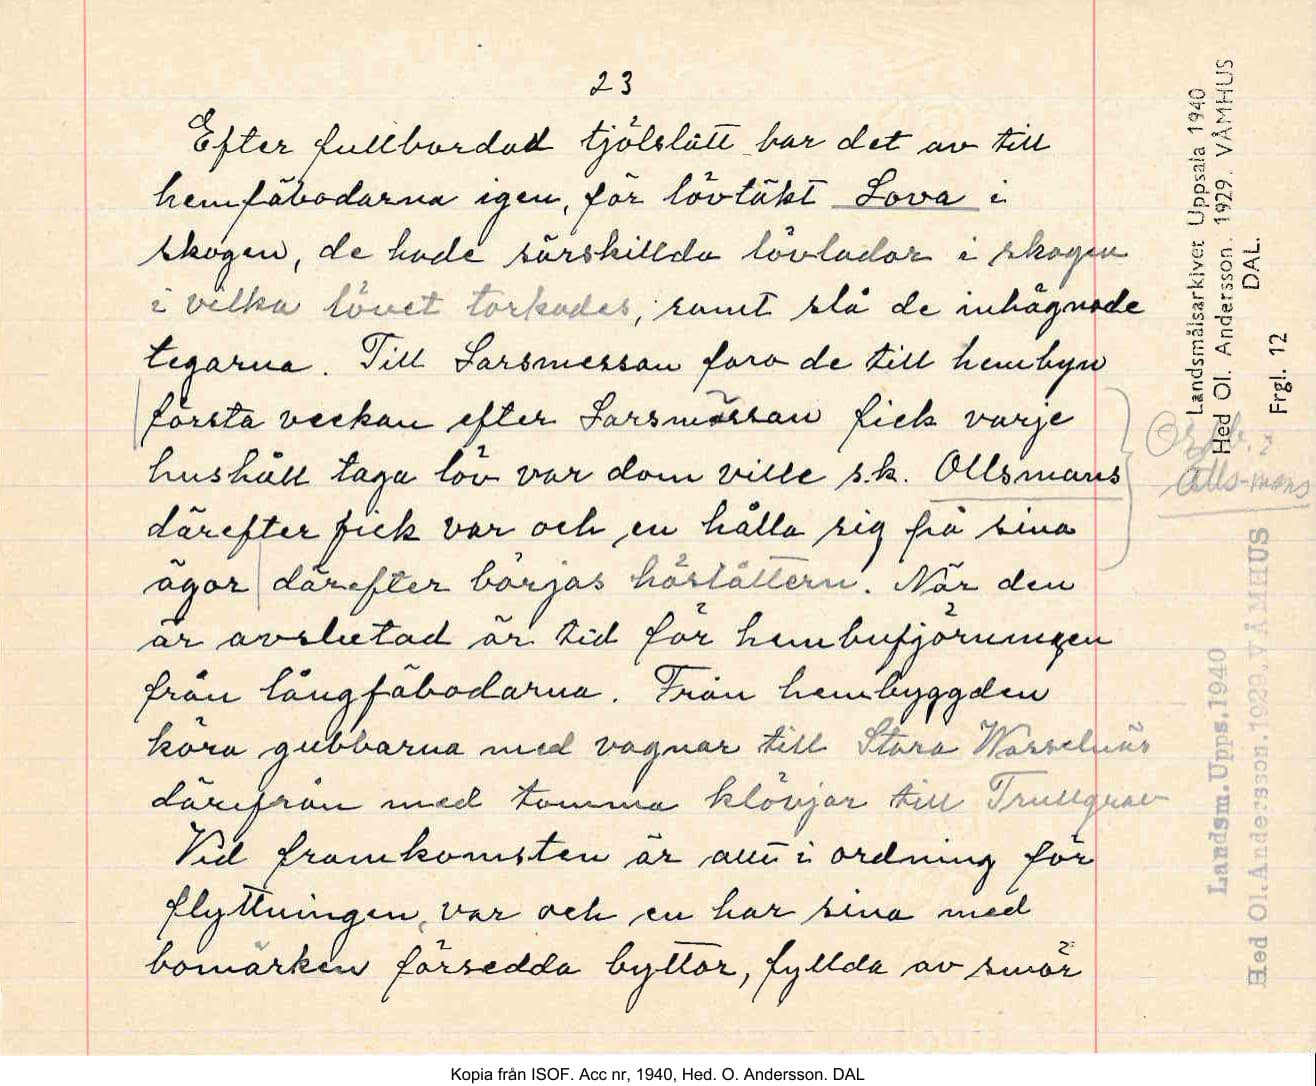 23
Efter fullbordad tjölslått bar det av till
hemfäbodarna igen, för lövtäkt Lova i
skogen, de hade särskillda lövlador i skogen
i vilka lövet torkades, samt slå de inhägnade
tegarna. Till Larsmessan foro de till hembyn
första veckan efter Larsmässan fick varje
hushåll taga löv var dom ville s.k. Ollsmans
därefter fick var och en hålla sig på sina
ägor därefter börjas höslåttern. När den
är avslutad är tid för hembufjöruningen
från långfäbodarna. Från hembyggden
köra gubbarna med vagnar till Stora
därifrån med tomma klövjar till Trullgrav
Vid framkomsten är allt i ordning för
flyttningen, var och en har sina med
bomärken försedda byttor, fyllda av smör
Landsmålsarkivet Uppsala 1940
Hed Ol. Andersson. 1929. VÅMHUS
DAL.
Frgl. 12
Alls-mans
Landsm.Upps.1940
Hed Ol.Andersson.1929.VÅMHUS
Kopia från ISOF. Acc nr, 1940, Hed. O. Andersson. DAL